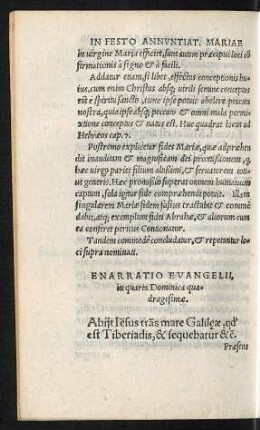 IN FESTO ANNVNTIAT. MARIAE
in uirgine Maria efficiet, sunt autem præcipui loci cō
firmationis à signo & à facili.
Addatur etiam, si libet, effectus conceptionis hu-
ius, cum enim Christus absq; uirili semine conceptus
est è spiritu sancto, iure ipse potuit abolere peccata
nostra, quia ipse absq; peccato & omni mala permi-
xtione conceptus & natus est. Huc quadrat locus ad
Hebræos cap. 7.
Postremo explicetur fides Mariæ, quæ adprehen
dit inauditam & magnificam dei promissionem, q̄
hæc uirgo pariet filium altissimi, & seruatorem to-
tius generis. Hæc promissio superat omnem humanum
captum, sola igitur fide comprehendi potuit.
singularem Mariæ fidem fusius tractabit & commē
dabit, atq; exemplum fidei Abrahæ, & aliorum cum
ea conferet peritus Concionator.
Tandem commodè concludatur, & repetuntur lo-
ci supra nominati.
ENARRATIO EVANGELII,
in quarta Dominica qua-
dragesimæ.
Abijt Iesus trās mare Galilææ, qd'
est Tiberiadis, & sequebatur &c̄.
Præsens